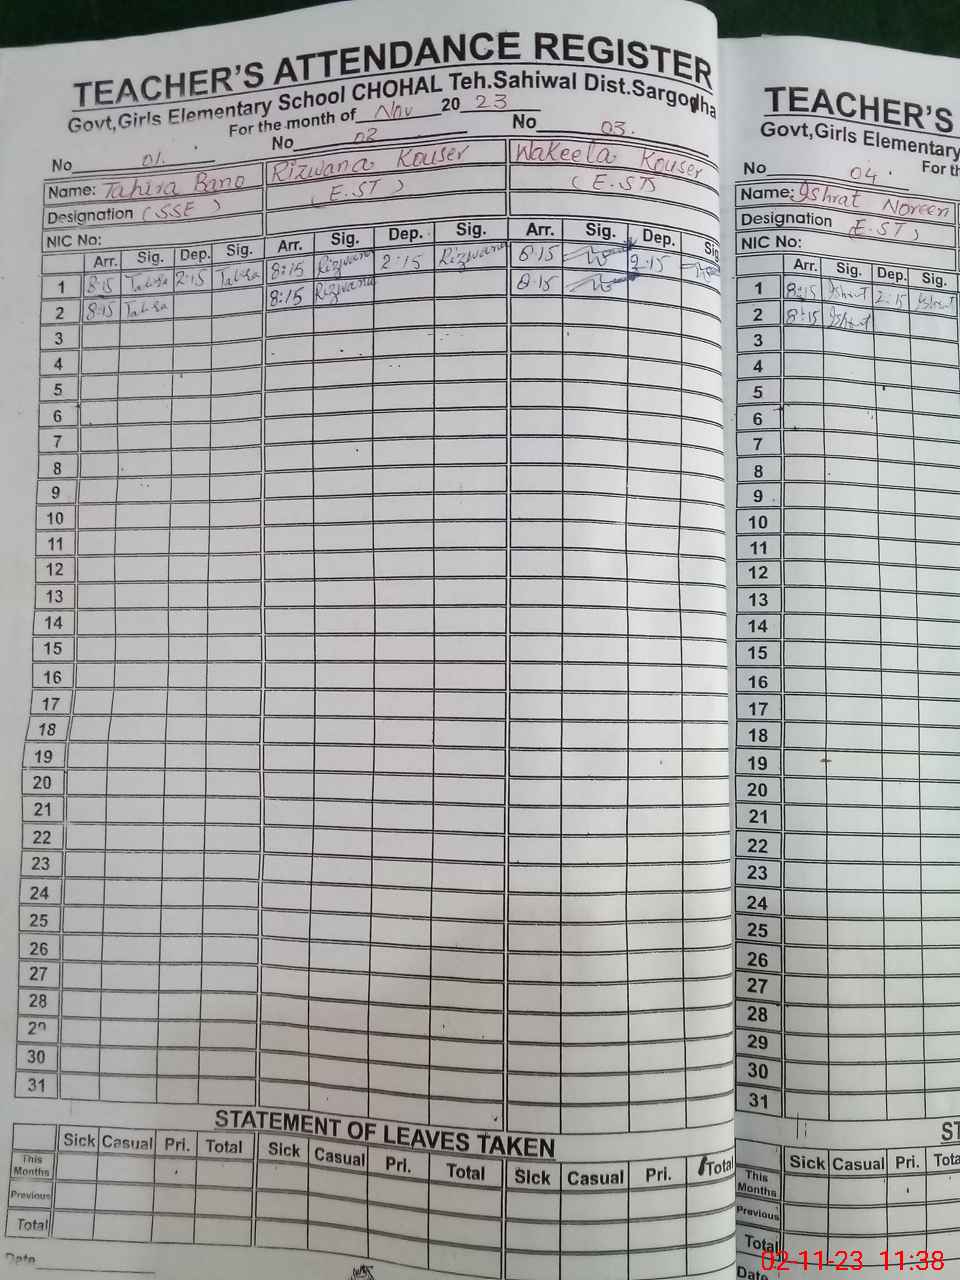 TEACHER'S ATTENDANCE REGISTER
Govt,Girls Elementary School CHOHAL Teh.Sahiwal Dist.Sargodha
For the month of Nov 2023
No 01. No 02 No 03.
Name: Tahira Bano Rizwana Kouser Wakeela Kouser
Designation (SSE) (E.ST) (E.ST)
NIC No:
Arr. Sig. Dep. Sig. Arr. Sig. Dep. Sig. Arr. Sig. Dep. Sig
1 8:15 Tahira 2:15 Tahira 8:15 Rizwana 2:15 Rizwana 8:15 2:15
2 8:15 Tahira 8:15 Rizwana 8:15
3
4
5
6
7
8
9
10
11
12
13
14
15
16
17
18
19
20
21
22
23
24
25
26
27
28
29
30
31
STATEMENT OF LEAVES TAKEN
Sick Casual Pri. Total Sick Casual Pri. Total Sick Casual Pri. Total
This Months
Previous
Total
Date
TEACHER'S
Govt,Girls Elementary
For th
No 04.
Name: Ishrat Noreen
Designation (E.ST)
NIC No:
Arr. Sig. Dep. Sig.
1 8:15 Ishrat 2:15 Ishrat
2 8:15 Ishrat
3
4
5
6
7
8
9
10
11
12
13
14
15
16
17
18
19
20
21
22
23
24
25
26
27
28
29
30
31
ST
Sick Casual Pri. Tota
This Months
Previous
Total
Date
02-11-23 11:38